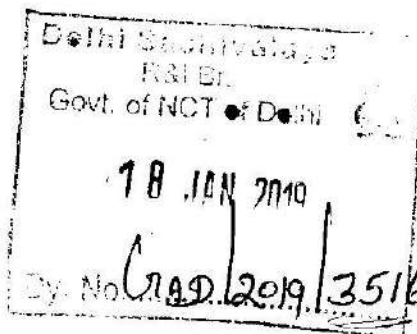 Delhi Sachivalaya
R&I Br.
Govt. of NCT of Delhi
18 JAN 2019
Dy. No. GAD/2019/3516